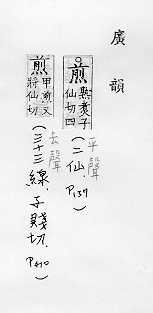 廣韻
煎
熟煑子
仙切四
平聲
(二仙.P139)
煎
甲煎又
將仙切
去聲
(三十三線.子賤切.P410)